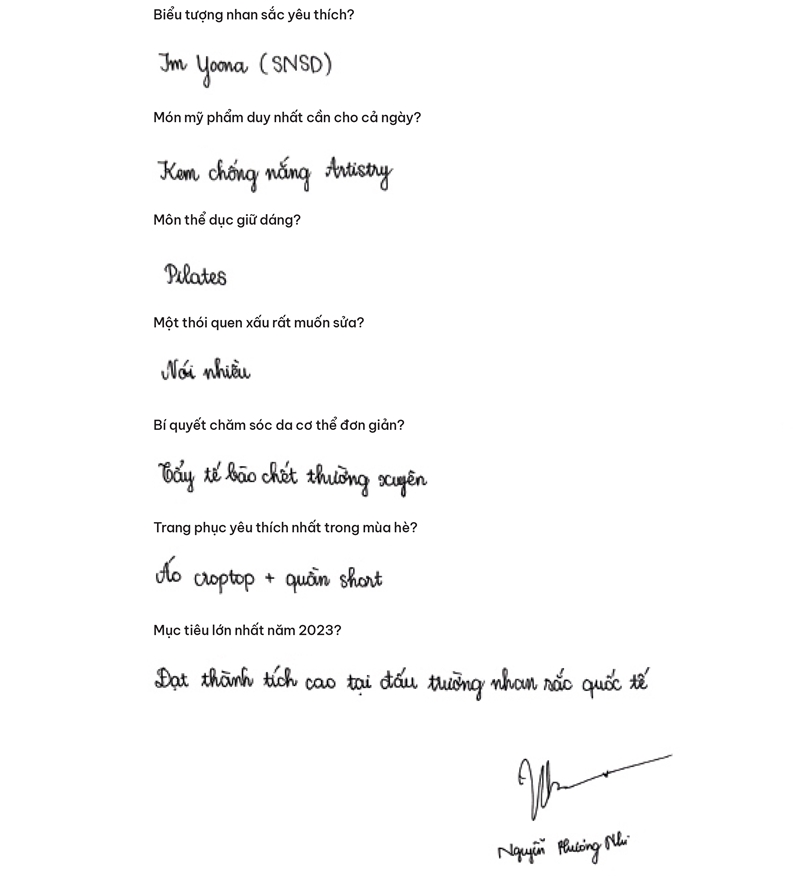 Biểu tượng nhan sắc yêu thích?
Im Yoona (SNSD)
Món mỹ phẩm duy nhất cần cho cả ngày?
Kem chống nắng Artistry
Môn thể dục giữ dáng?
Pilates
Một thói quen xấu rất muốn sửa?
Nói nhiều
Bí quyết chăm sóc da cơ thể đơn giản?
Tẩy tế bào chết thường xuyên
Trang phục yêu thích nhất trong mùa hè?
Áo croptop + quần short
Mục tiêu lớn nhất năm 2023?
Đạt thành tích cao tại đấu trường nhan sắc quốc tế
Nguyễn Phương Nhi